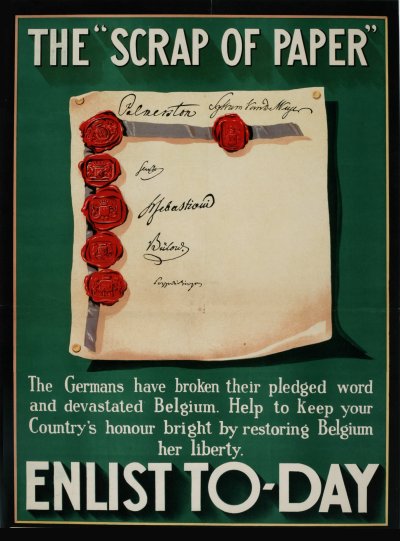 THE "SCRAP OF PAPER"
Palmerston Sylvain Van de Weyer
Senfft
H Sebastiani
Bülow
Pozzo di Borgo
The Germans have broken their pledged word
and devastated Belgium. Help to keep your
Country's honour bright by restoring Belgium
her liberty.
ENLIST TO-DAY